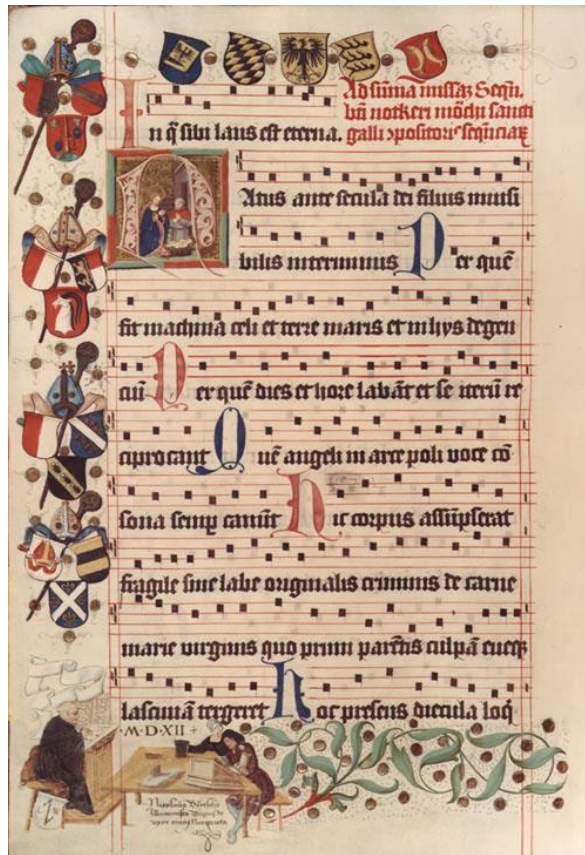 Ad sūma missaȝ Seqn̄.
In q̄ sibi laus est eterna.
bt̄i notkeri mōchi sancti
galli ꝯpositoris seqn̄ciaꝝ
Natus ante secula dei filius invisi
bilis interminus Per quē
fit machina celi et terre maris et in hys degen
ciū Per quē dies et hore labāt et se iterū re
ciprocant Quē angeli in arce poli voce cō
sona semꝑ canūt Hic corpus assūpserat
fragile sine labe originalis criminis de carne
marie virginis quo primi parētis culpā eveqꝫ
lasciuiā tergeret Hoc presens diecula loq̄
·M·D·XII+